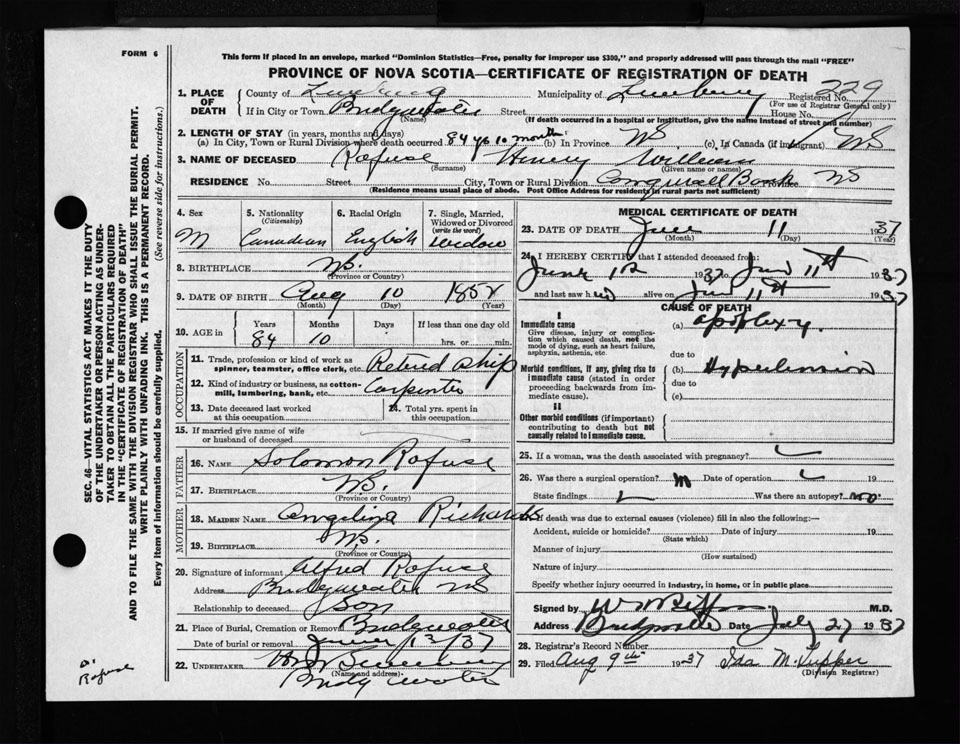 FORM 6
This form if placed in an envelope, marked "Dominion Statistics—Free, penalty for improper use $300," and properly addressed will pass through the mail "FREE"
PROVINCE OF NOVA SCOTIA—CERTIFICATE OF REGISTRATION OF DEATH
1. PLACE OF DEATH County of Municipality of Lunenburg Registered No. 229
(For use of Registrar General only)
If in City or Town Bridgewater Street House No.
(Name) (If death occurred in a hospital or institution, give the name instead of street and number)
2. LENGTH OF STAY (in years, months and days)
(a) In City, Town or Rural Division where death occurred 84 yrs 10 months (b) In Province NS (c) In Canada (if immigrant) NS
3. NAME OF DECEASED Rofuse Henry William
(Surname) (Given name or names)
RESIDENCE No. Street City, Town or Rural Division NS
(Residence means usual place of abode. Post Office Address for residents in rural parts not sufficient)
4. Sex M
5. Nationality (Citizenship) Canadian
6. Racial Origin English
7. Single, Married, Widowed or Divorced (write the word) widow
8. BIRTHPLACE NS.
(Province or Country)
9. DATE OF BIRTH Aug 10
(Month) (Day) (Year)
10. AGE in Years Months Days If less than one day old
84 10 hrs. or min.
OCCUPATION
11. Trade, profession or kind of work as spinner, teamster, office clerk, etc. Retired Ship
12. Kind of industry or business, as cotton-mill, lumbering, bank, etc. Carpenter
13. Date deceased last worked at this occupation
14. Total yrs. spent in this occupation
15. If married give name of wife or husband of deceased
FATHER
16. NAME Solomon Rofuse
17. BIRTHPLACE NS.
(Province or Country)
MOTHER
18. MAIDEN NAME Angelina Richards
19. BIRTHPLACE NS.
(Province or Country)
20. Signature of informant Alfred Rofuse
Address Bridgewater NS
Relationship to deceased Son
21. Place of Burial, Cremation or Removal Bridgewater
Date of burial or removal 13/37
22. UNDERTAKER
(Name and address)
Bridgewater
MEDICAL CERTIFICATE OF DEATH
23. DATE OF DEATH June 11 1937
(Month) (Day) (Year)
24. I HEREBY CERTIFY that I attended deceased from:
June 1937 to June 11th 1937
and last saw h alive on June 11th 1937
CAUSE OF DEATH
I
Immediate cause (a) apoplexy.
Give disease, injury or complication which caused death, not the mode of dying, such as heart failure, asphyxia, asthenia, etc.
due to
Morbid conditions, if any, giving rise to immediate cause (stated in order proceeding backwards from immediate cause). (b) Hypertension
due to
(c)
II
Other morbid conditions (if important) contributing to death but not causally related to immediate cause.
25. If a woman, was the death associated with pregnancy?
26. Was there a surgical operation? Date of operation
State findings Was there an autopsy? no
27. If death was due to external causes (violence) fill in also the following:—
Accident, suicide or homicide? Date of injury 19
(State which)
Manner of injury
(How sustained)
Nature of injury
Specify whether injury occurred in industry, in home, or in public place
Signed by M.D.
Address Bridgewater Date July 27 1937
28. Registrar's Record Number
29. Filed Aug 9th 1937 Ida M. Tupper
(Division Registrar)
SEC. 46—VITAL STATISTICS ACT MAKES IT THE DUTY
OF THE UNDERTAKER OR PERSON ACTING AS UNDER-
TAKER TO OBTAIN ALL THE PARTICULARS REQUIRED
IN THE "CERTIFICATE OF REGISTRATION OF DEATH"
AND TO FILE THE SAME WITH THE DIVISION REGISTRAR WHO SHALL ISSUE THE BURIAL PERMIT.
WRITE PLAINLY WITH UNFADING INK. THIS IS A PERMANENT RECORD.
Every item of information should be carefully supplied. (See reverse side for instructions.)
Rofuse